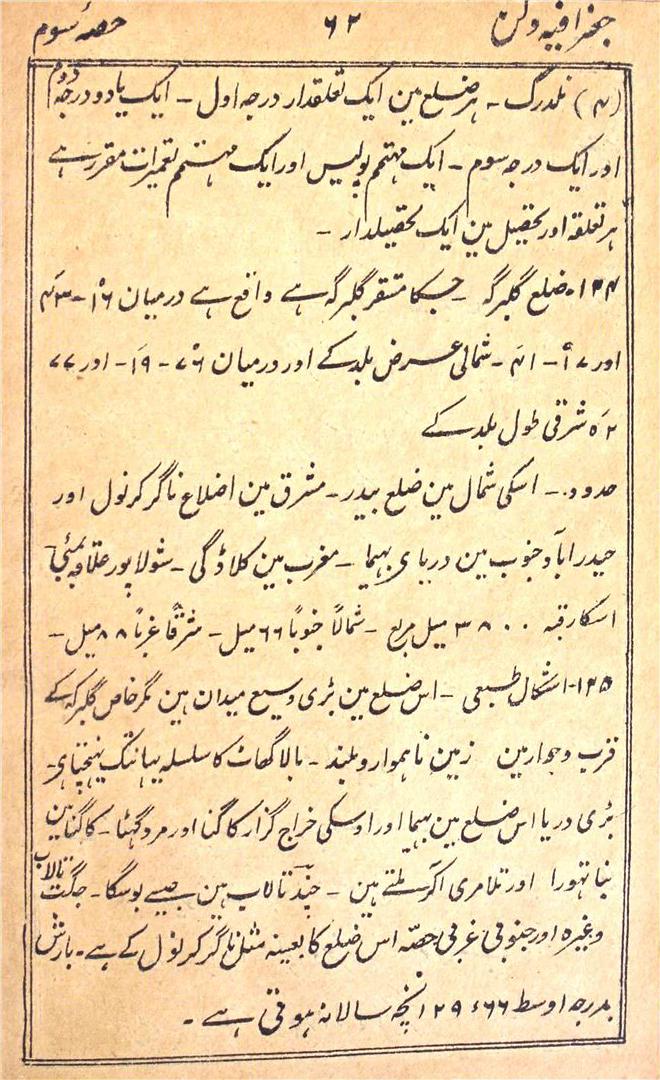 جغرافیہ دکن ۶۲ حصۂ سوم
(۴) نلدرگ - ہر ضلع مین ایک تعلقدار درجہ اول - ایک یا دو درجہ دوم
اور ایک درجہ سوم - ایک مہتمم پولیس اور ایک مہتمم تعمیرات مقرر ہے
ہر تعلقہ اور تحصیل مین ایک تحصیلدار -
۱۲۴- ضلع گلبرگہ - جسکا مستقر گلبرگہ ہے واقع ہے درمیان ۱۶ - ۴۳
اور ۱۷ - ۴۱ - شمالی عرض بلد کے اور درمیان ۷۶ - ۱۹ - اور ۷۷
۵۲ شرقی طول بلد کے
حدود - اسکی شمال مین ضلع بیدر - مشرق مین اضلاع ناگر کرنول اور
حیدراباد جنوب مین دریای بہیما - مغرب مین کلاڈگی - شولاپور علاقہ بمبئی
اسکا رقبہ ۳۸۰۰ میل مربع - شمالاً جنوباً ۶۶ میل - شرقاً غرباً ۸۸ میل -
۱۲۵- اشکال طبعی - اس ضلع مین بڑی وسیع میدان ہین مگر خاص گلبرگہ کے
قرب وجوار مین زمین ناہموار و بلند - بالاگھاٹ کا سلسلہ یہانتک پہنچتا ہی -
بڑی دریا اس ضلع مین بہیما اور اوسکی خراج گزار کاگنا اور مردگہٹا - کاگنا مین
بناتہورا اور تلامری آکر ملتے ہین - چند تالاب ہین جیسے بوسگا - جگت تالاب
وغیرہ اور جنوبی غربی حصّہ اس ضلع کا بعینہ مثل ناگر کرنول کے ہے - بارش
بدرجہ اوسط ۲۹ء۶۶ انچہ سالانہ ہوتی ہے -